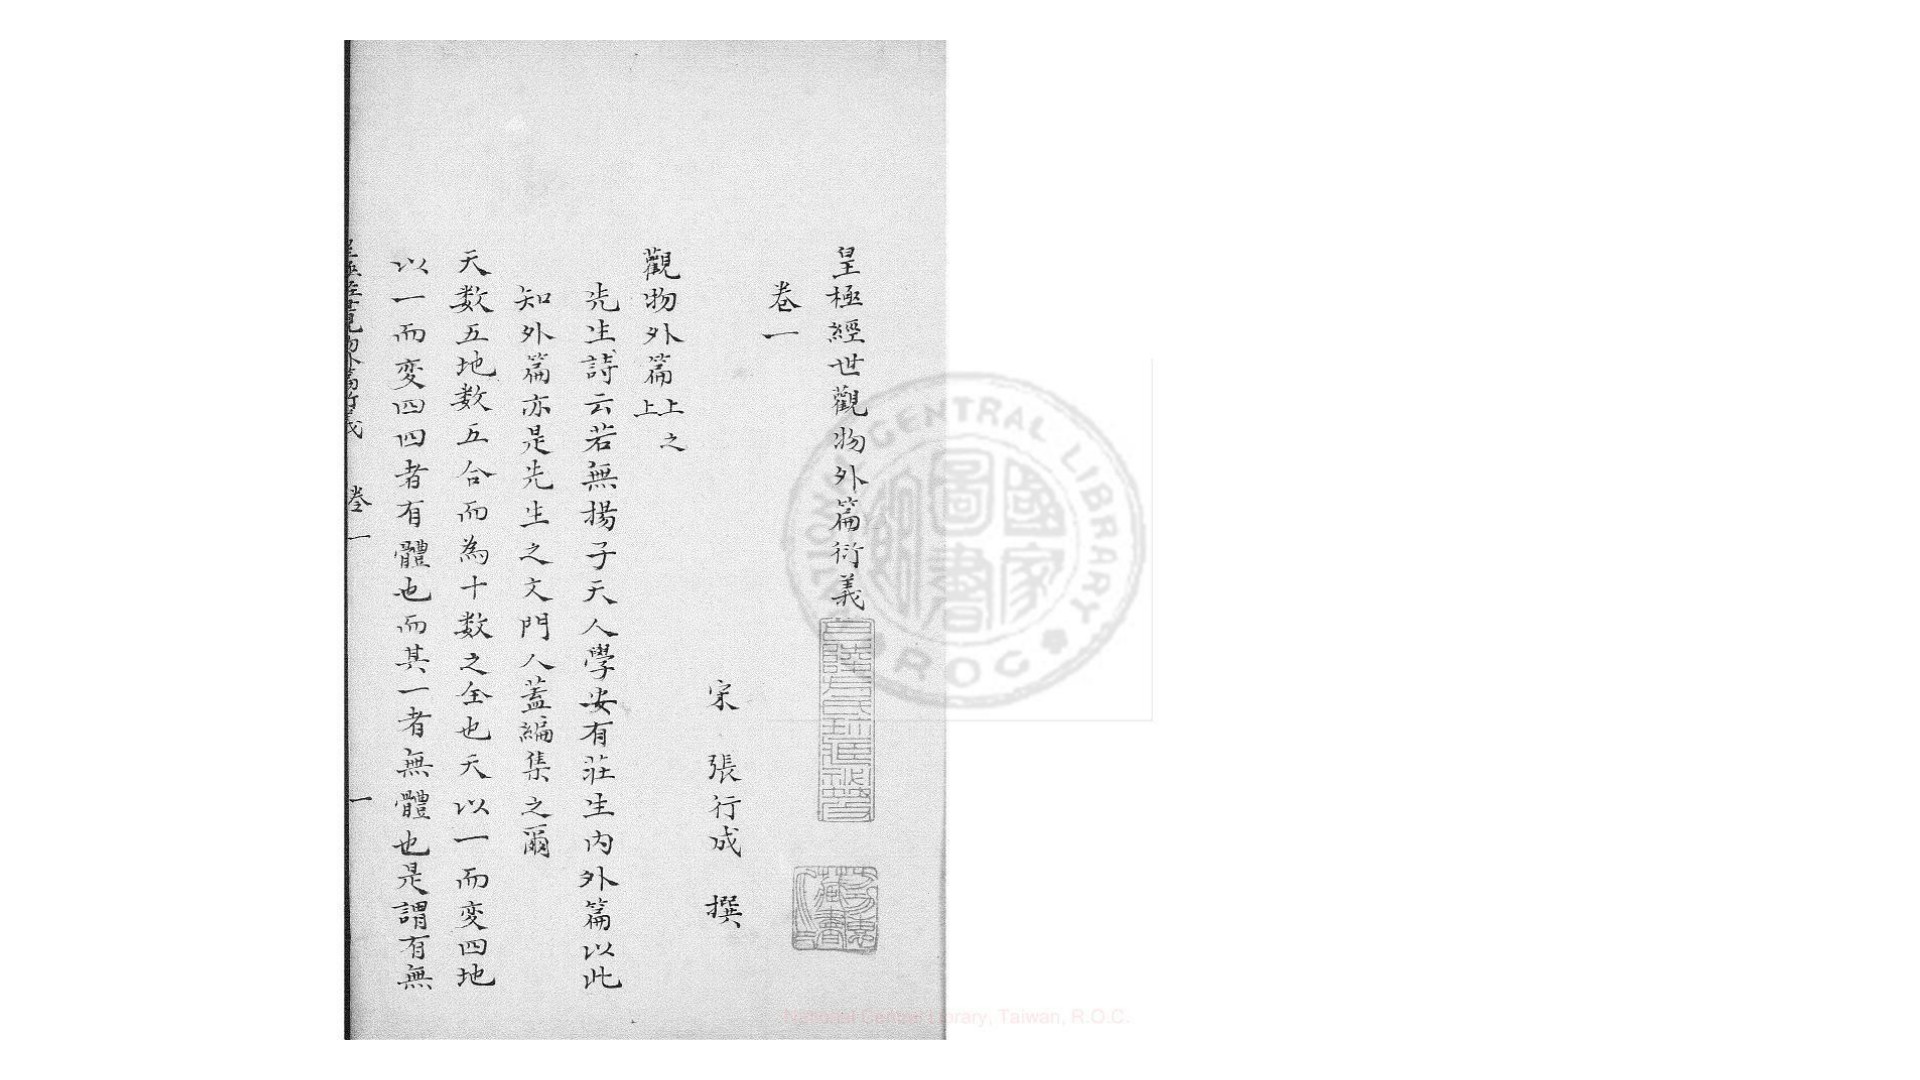 皇極經世觀物外篇衍義
卷一
宋 張行成 撰
觀物外篇上之上
先生詩云若無揚子天人學安有莊生內外篇以此
知外篇亦是先生之文門人蓋編集之爾
天数五地数五合而為十数之全也天以一而変四地
以一而変四四者有體也而其一者無體也是謂有無
卷一 一
NATIONAL CENTRAL LIBRARY
R.O.C
國家圖書館
National Central Library, Taiwan, R.O.C.